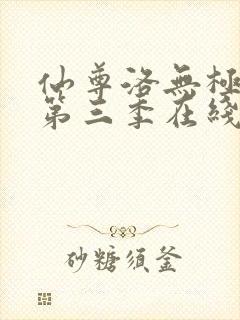 仙尊洛無極
第三季在綫
砂糖须釜